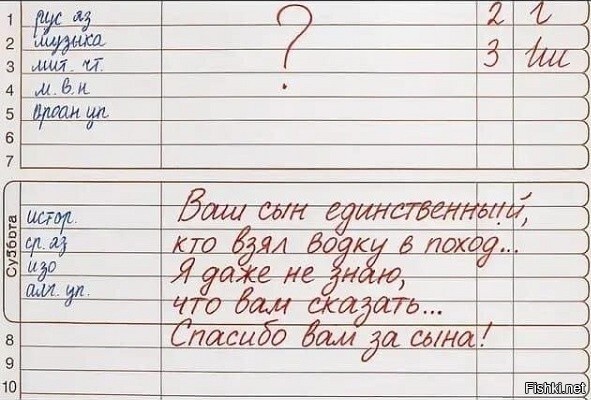 1 рус яз ? 2 г
2 музыка
3 лит. чт. 3
4 м.в.н
5
6
7
Суббота
истор.
ср. яз
изо
алг. уп.
Ваш сын единственный,
кто взял водку в поход...
Я даже не знаю,
что вам сказать...
Спасибо вам за сына!
8
9
10
Fishki.net